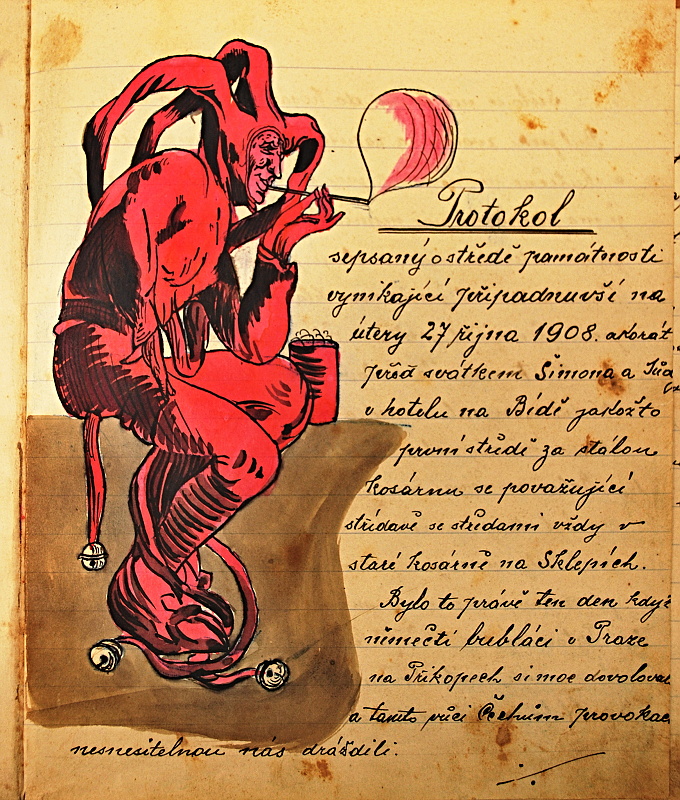 Protokol
sepsaný o středě památnosti
vynikající připadnuvší na
úterý 27 října 1908. akorát
před svátkem Šimona a Jud
v hotelu na Bídě jakožto
první středě za stálou
kosárnu se považující
střídavě se středami vždy v
staré kosárně na Sklepích.
Bylo to právě ten den když
němečtí buršáci v Praze
na Příkopech si moc dovolovali
a tamto vůči Čechům provokac
nesnesitelnou nás dráždili.